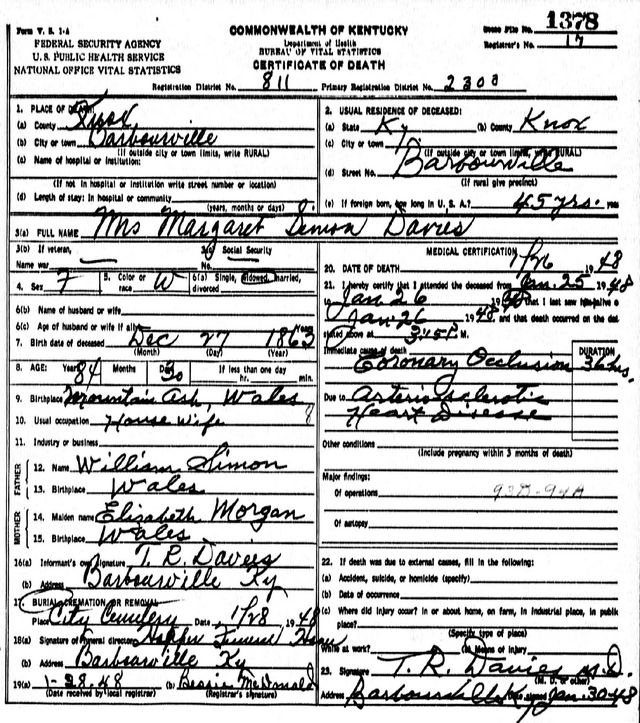 Form V. S. 1-A
FEDERAL SECURITY AGENCY
U. S. PUBLIC HEALTH SERVICE
NATIONAL OFFICE VITAL STATISTICS
COMMONWEALTH OF KENTUCKY
Department of Health
BUREAU OF VITAL STATISTICS
CERTIFICATE OF DEATH
File No. 1378
Registrar's No. 17
Registration District No. 811 Primary Registration District No. 2300
1. PLACE OF DEATH:
(a) County Knox
(b) City or town Barbourville
(If outside city or town limits, write RURAL)
(c) Name of hospital or institution:
(If not in hospital or institution write street number or location)
(d) Length of stay: In hospital or community
(years, months or days)
2. USUAL RESIDENCE OF DECEASED:
(a) State Ky. (b) County Knox
(c) City or town Barbourville
(If outside city or town limits, write RURAL)
(d) Street No.
(If rural give precinct)
(e) If foreign born, how long in U. S. A.? 45 yrs. years
3(a) FULL NAME Mrs Margaret Simon Davies
3(b) If veteran,
Name war
3(c) Social Security
No.
4. Sex F 5. Color or race W 6(a) Single, widowed, married, divorced
6(b) Name of husband or wife
6(c) Age of husband or wife if alive Years
7. Birth date of deceased Dec 27 1863
(Month) (Day) (Year)
8. AGE: Years 84 Months Days 30 If less one day
hr. min.
9. Birthplace Mountain Ash, Wales
10. Usual occupation House Wife
11. Industry or business
FATHER
12. Name William Simon
13. Birthplace Wales
MOTHER
14. Maiden name Elizabeth Morgan
15. Birthplace Wales
16(a) Informant's own Signature T. R. Davies
(b) Address Barbourville Ky
17. BURIAL, CREMATION OR REMOVAL
Place City Cemetery Date 1/28 1948
18(a) Signature of funeral director Hopper Funeral Home
(b) Address Barbourville Ky
19(a) 1-28-48 (b) Bessie McDonald
(Date received by local registrar) (Registrar's signature)
MEDICAL CERTIFICATION
20. DATE OF DEATH 1/26 1948
21. I hereby certify that I attended the deceased from Jan. 25 1948
to Jan 26 19 that I last saw alive on
Jan 26 1948 and that death occurred on the date
stated above at 3:45 P. M.
Immediate cause of death DURATION
Coronary Occlusion 36 hrs.
Due to Arteriosclerotic
Heart Disease
Other conditions
(Include pregnancy within 3 months of death)
Major findings:
Of operations 93D-94A
Of autopsy
22. If death was due to external causes, fill in the following:
(a) Accident, suicide, or homicide (specify)
(b) Date of occurrence
(c) Where did injury occur? In or about home, on farm, in industrial place, in public
place?
(Specify type of place)
While at work? Means of injury
23. Signature T. R. Davies M.D.
(M. D. or other)
Address Barbourville Ky. signed Jan. 30 48